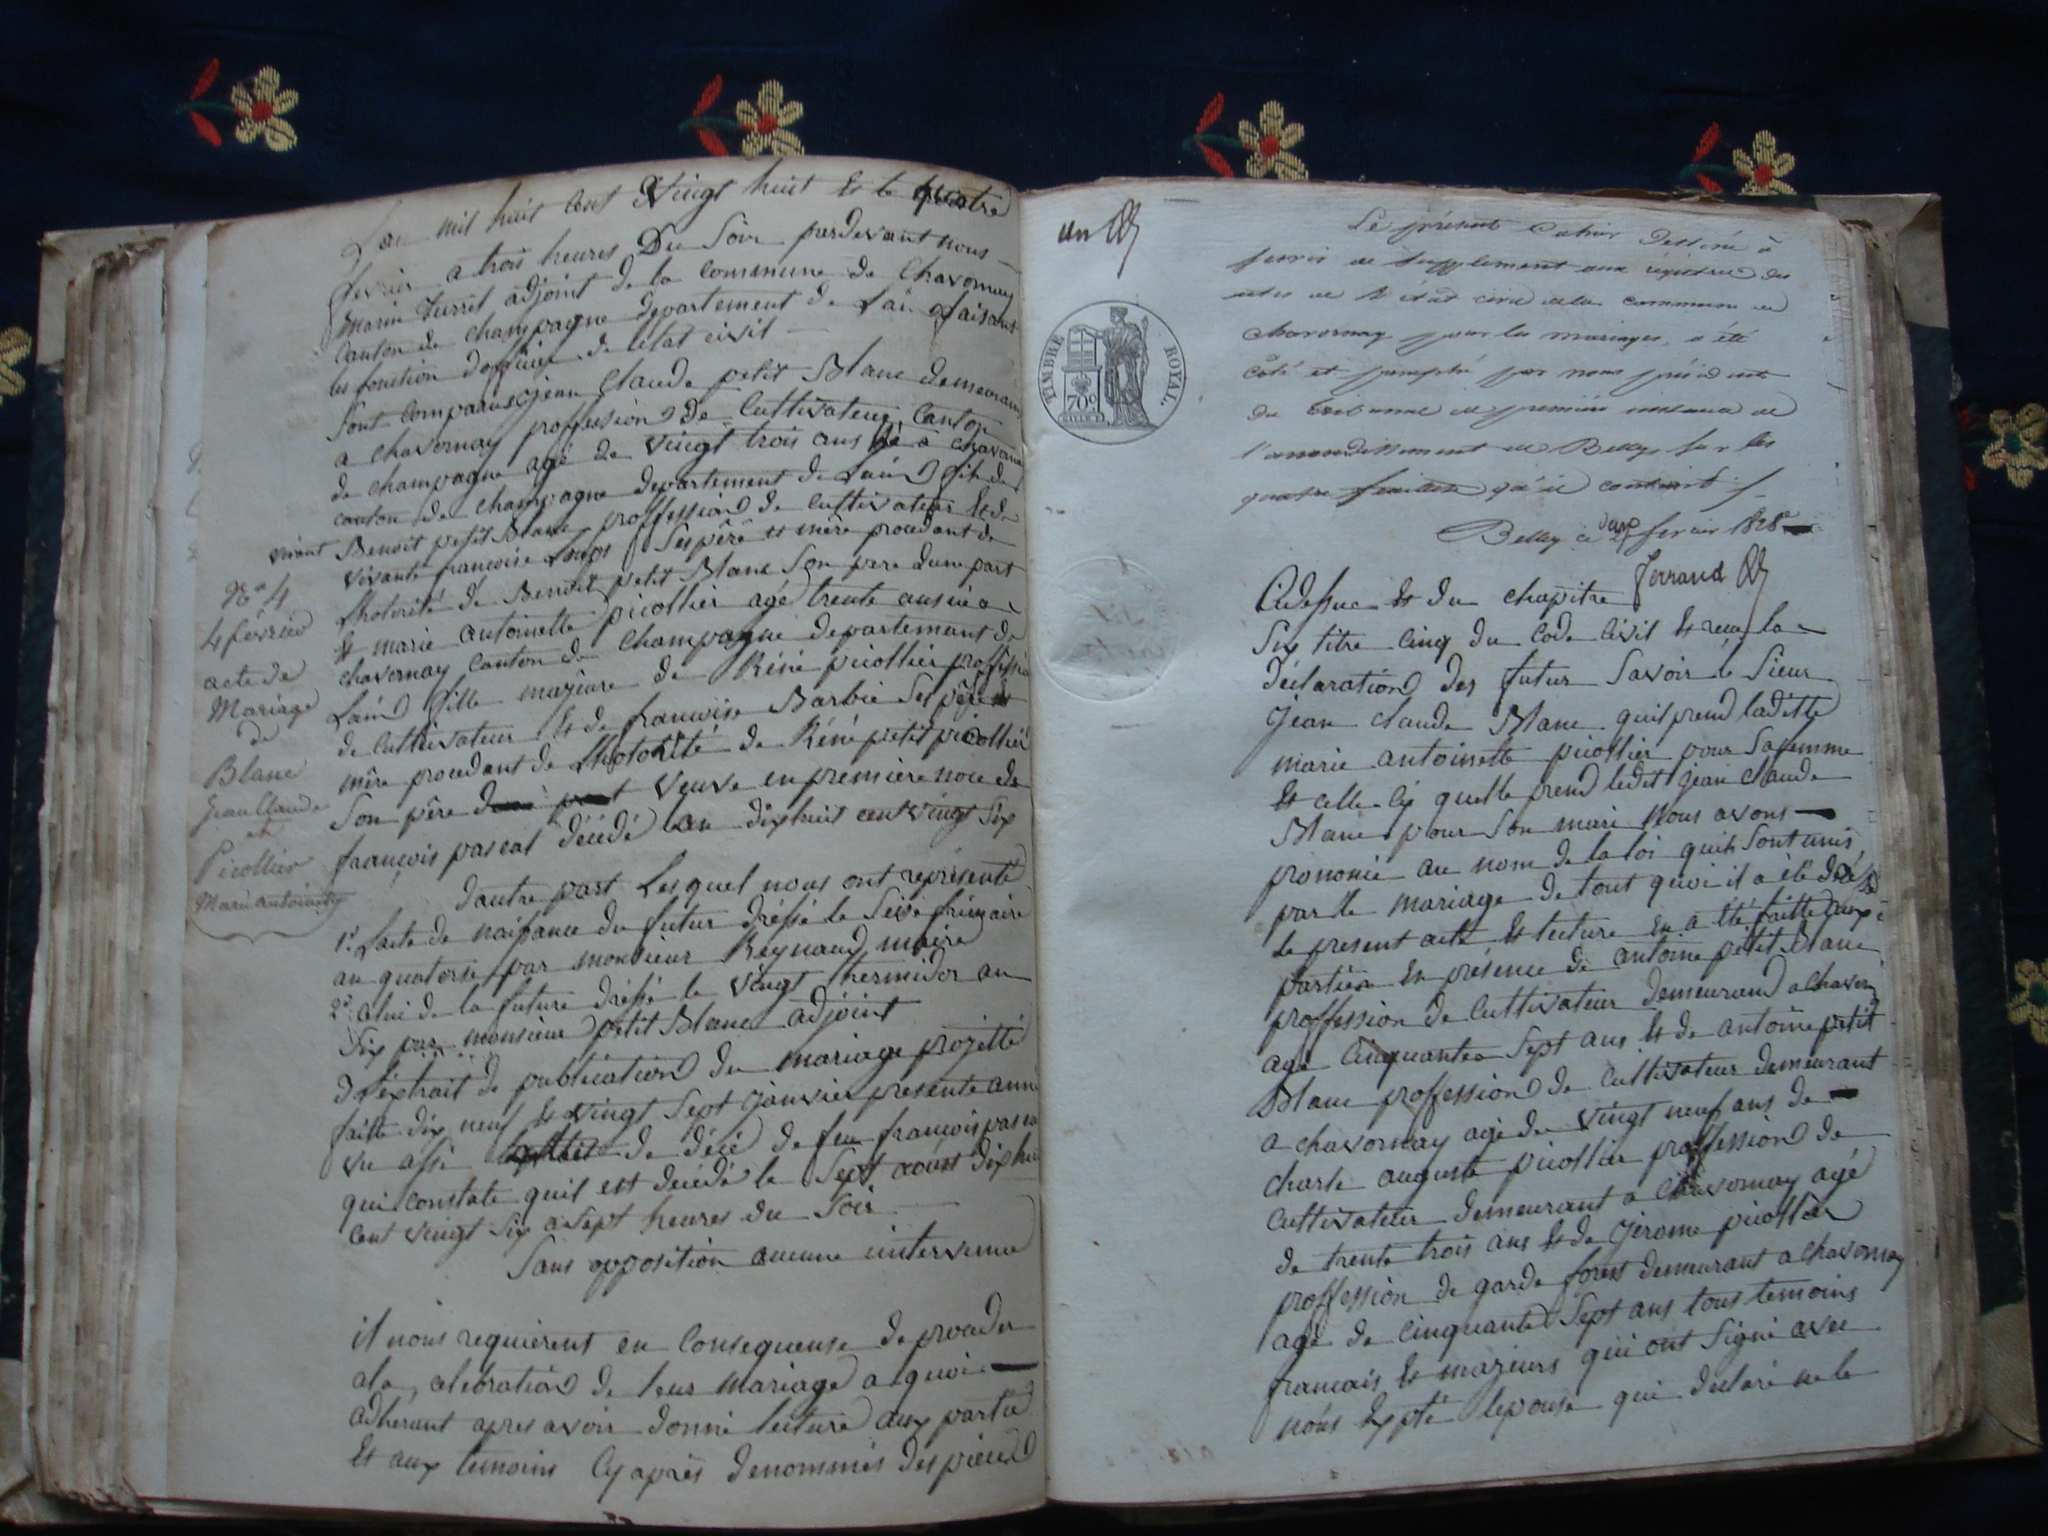 Lan mil huit cent Vingt huit Et le quatre
fevrier a trois heures Du Soir pardevant nous
Marin Jurret adjoint de la commune de Chavornay
Canton de champagne departement de Lain faisant
les fonction dofficier de létat civil
Sont comparus jean Claude petit Blanc demeurant
a chavornay proffession de Cultivateur Canton
de champagne agé de vingt trois ans né a chavornay
canton de champagne departement de Lain fils de
vivant Benoit petit Blanc proffession de cultivateur Et de
vivante francoise Ses père et mère procedant de
Lhotorité de Benoit petit Blanc Son pere dune part
Et marie antoinette picollier agé trente ans né a
chavornay canton de Champagne departemant de
Lain fille majeure de Réné picollier proffession
de Cultivateur Et de francoise Barbie Ses père et
mère procedant de Lhotorité de Réné petit picollier
Son père veuve en premiere noce de
françois pascal décédé lan dixhuit cent vingt six
dautre part Lesquel nous ont représenté
1º Lacte de naissance du futur dréssé le Seise frimaire
an quatorse par monsieur Reynaud maire
2º Celui de la future dréssé le vingt thermidor an
Six par monsieur petit Blanc adjoint
3 Léxtrait de publication du mariage projetté
faitte dix neuf Et vingt Sept janvier presente anné
vu assi de décé de feu francois pascal
qui constate quil est decédé le Sept août dix huit
cent vingt Six a Sept heures du Soir
Sans opposition aucune intervenue
il nous requièrent en Consequense de proceder
ala celebration de leur mariage a quoi
adhérant apres avoir donné lecture aux partie
Et aux temoins Cy après dénommés des pieces
Nº 4
4 février
acte de
Mariage
de
Blanc
Jean Claude
et
Picollier
Marie antoinette
un
TIMBRE ROYAL
70c
Le présent cahier destiné à
servir de supplement aux régistres des
actes de l'état civil de la commune de
chavornay pour les mariages, a été
coté et paraphé par nous président
du tribunal de première instance de
l'arrondissement de Belley sur les
quatre feuillets qu'il contient
Belley ce deux fevrier 1828
Ferrand
Cidessus Et du chapitre
Six titre Cinq du Code Civil Et reçu la
déclaration des futur Savoir le Sieur
jean claude Blanc quil prend ladette
marie antoinette picollier pour Sa femme
Et celle-ci quelle prend ledit jean Claude
Blanc pour Son mari Nous avons
prononcé au nom de la loi quils Sont unis
par le mariage de tout quoi il a été dréssé
le present acte Et lecture en a été faitte aux
partiés En présence de antoine petit Blanc
proffession de Cultivateur demeurand a chavornay
agé Cinquantes Sept ans Et de antoine petit
Blanc proffession de Cultivateur demeurant
a chavornay agé de vingt neuf ans de
charle auguste picollier proffession de
Cultivateur demeurant a chavornay agé
de trente trois ans Et de jérome picollier
proffession de garde forest demeurant a chavornay
agé de cinquante Sept ans tous temoins
francais Et majeurs qui ont Signé avec
nous Expté lepouse qui declaré ne le